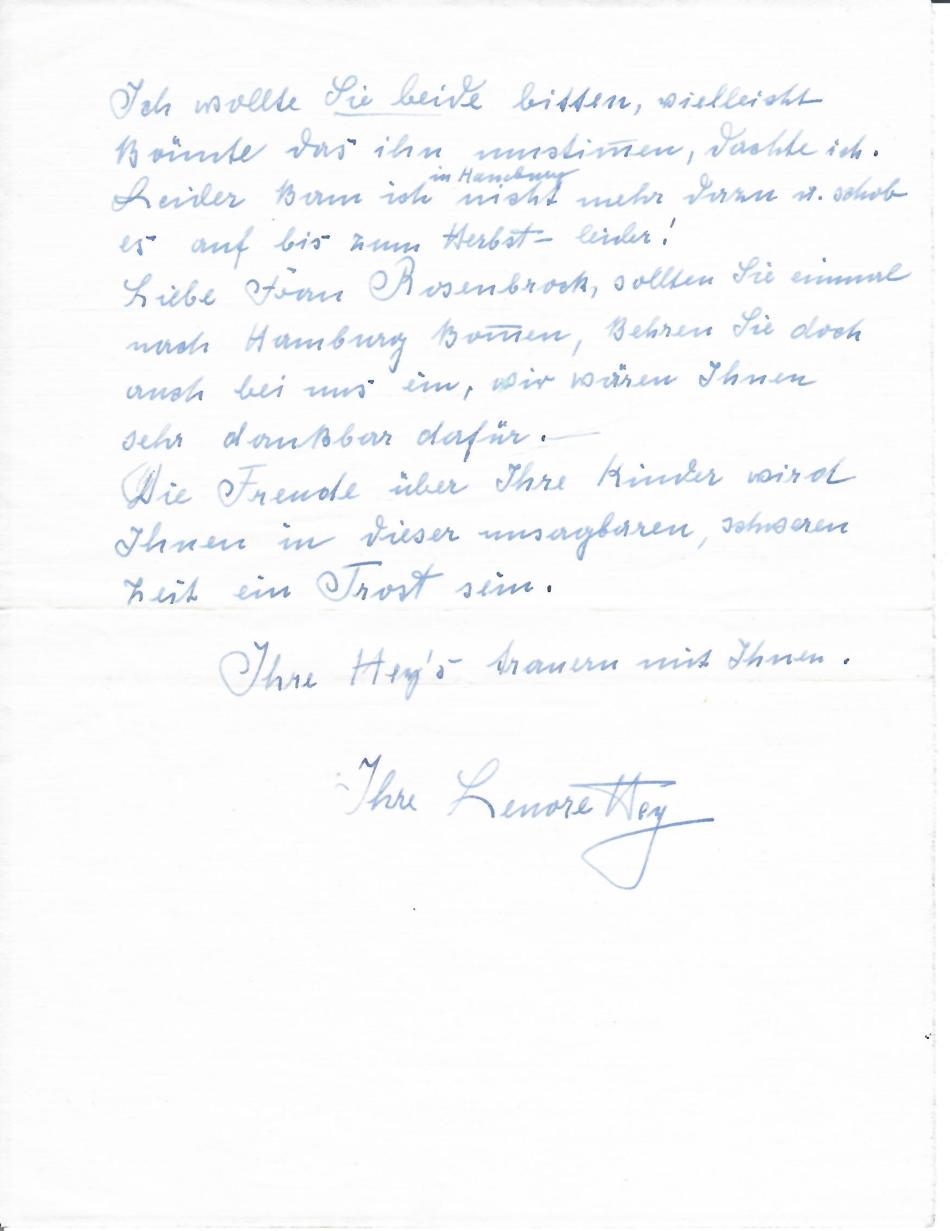 Ich wollte Sie beide bitten, vielleicht
könnte das ihn umstim̅en, dachte ich.
in Hamburg
Leider kam ich nicht mehr dazu u. schob
es auf bis zum Herbst – leider!
Liebe Frau Rosenbrock, sollten Sie einmal
nach Hamburg kom̅en, kehren Sie doch
auch bei uns ein, wir wären Ihnen
sehr dankbar dafür. —
Die Freude über Ihre Kinder wird
Ihnen in dieser unsagbaren, schweren
Zeit ein Trost sein.
Ihre Hey's trauern mit Ihnen.
Ihre Lenore Hey